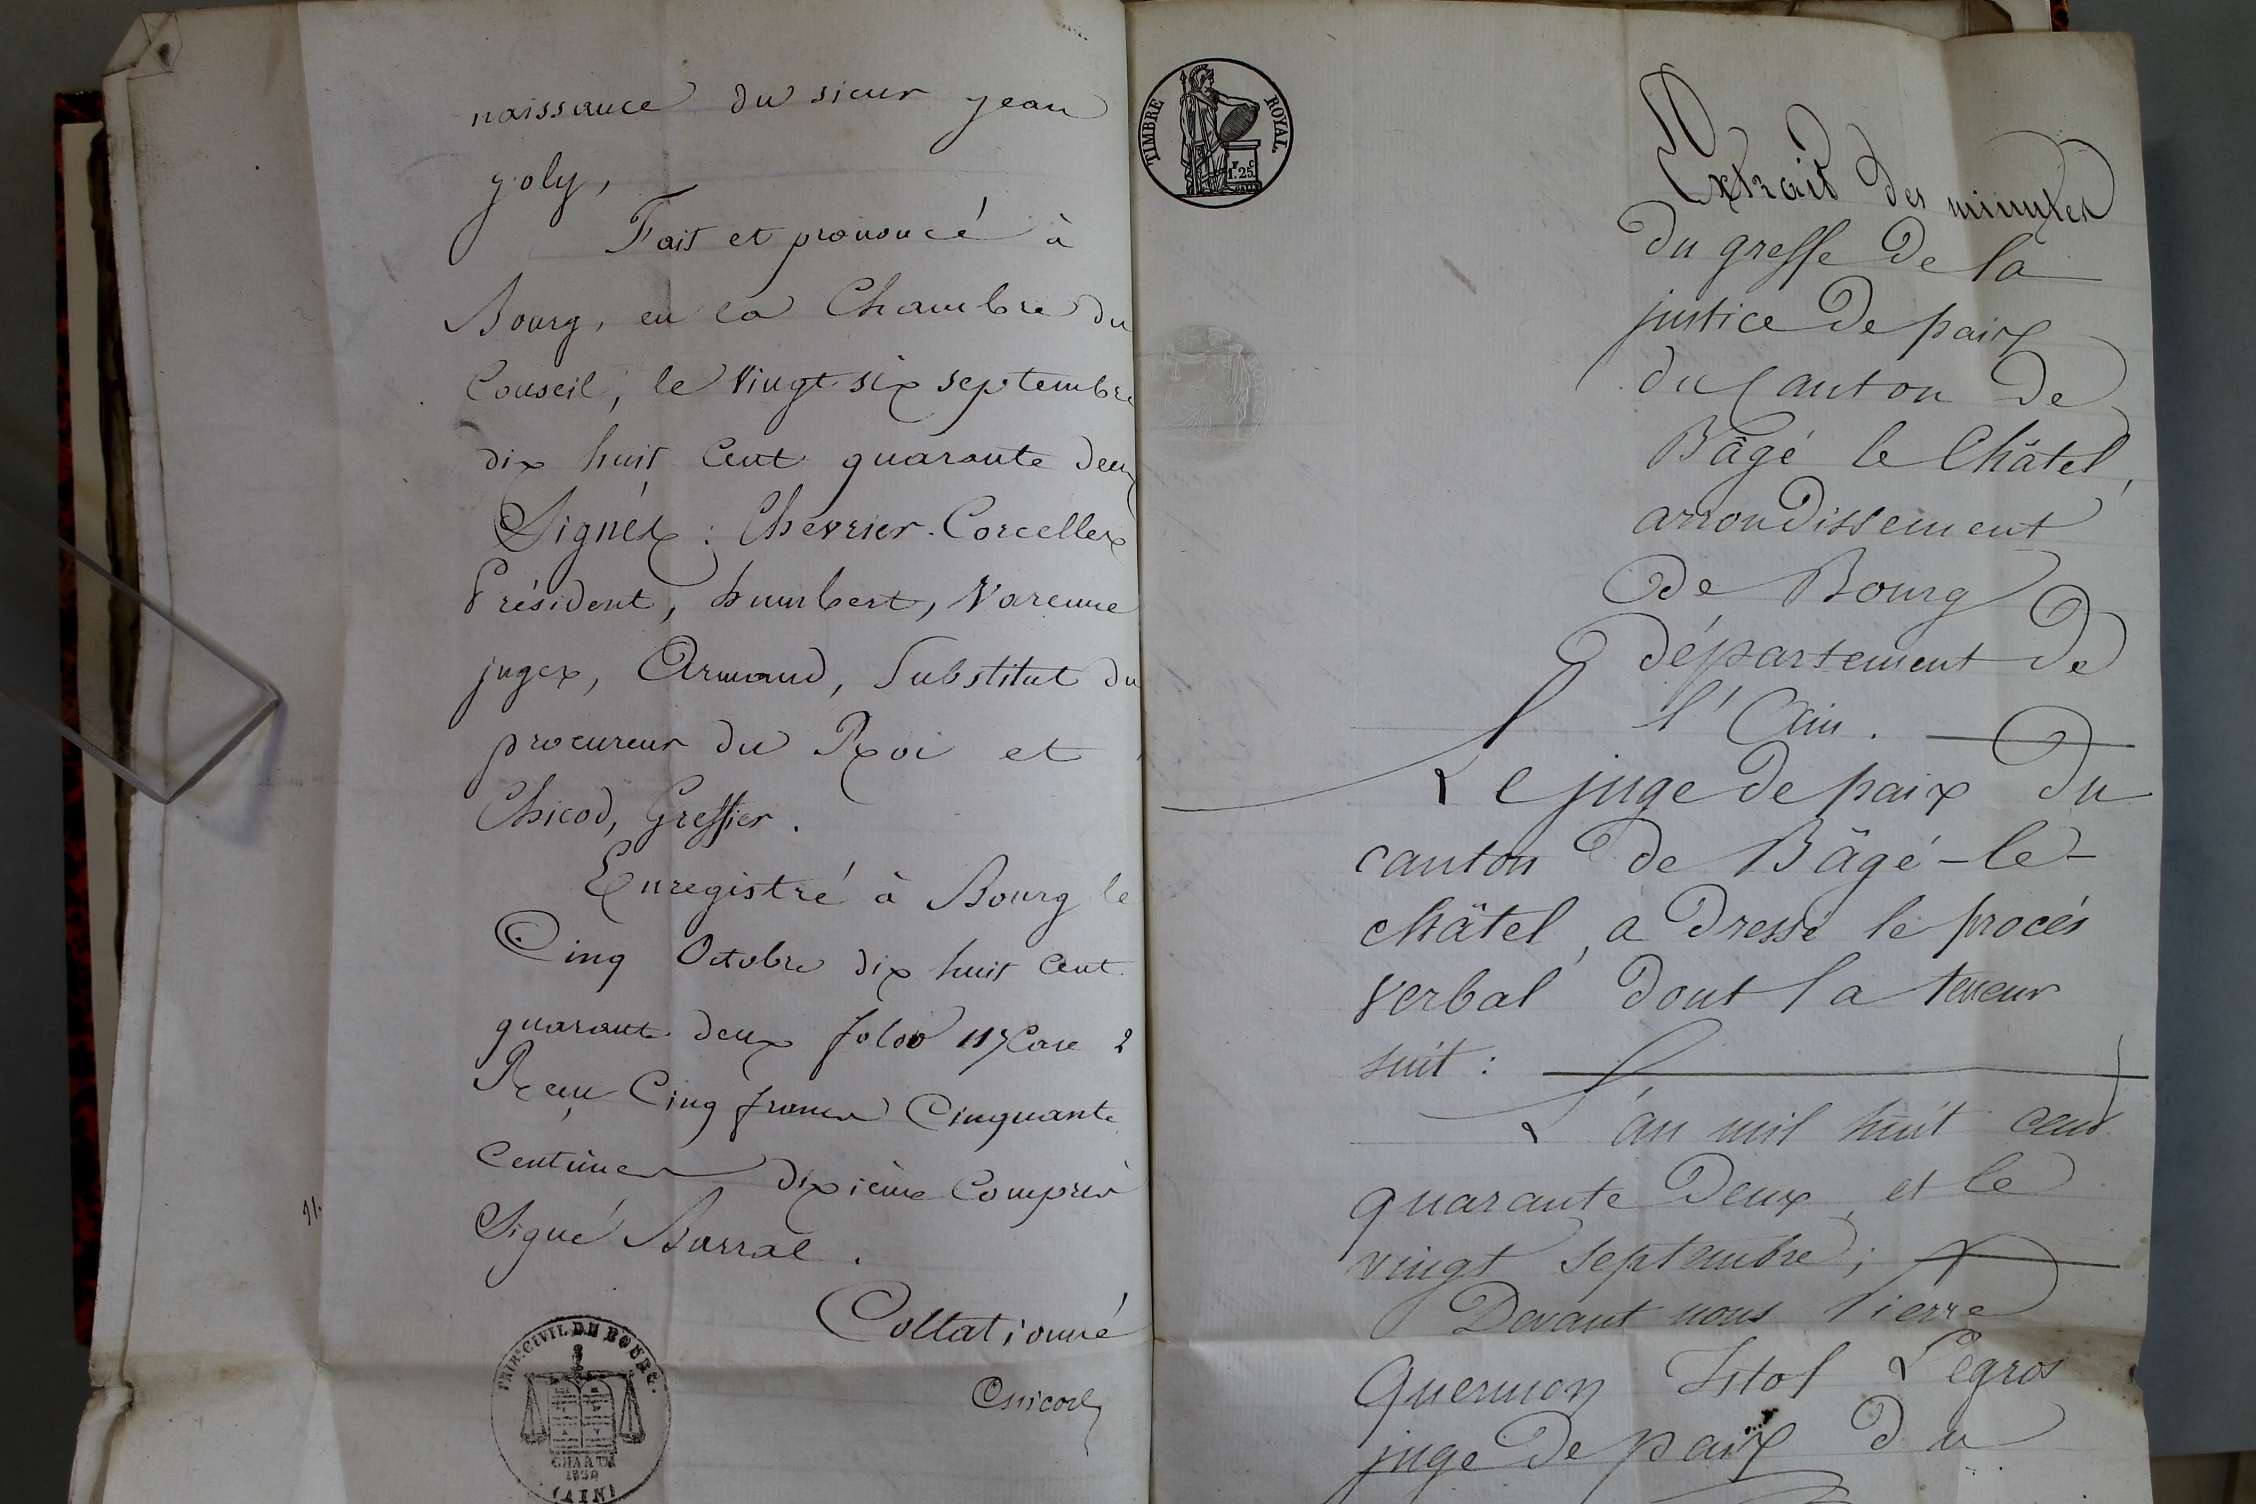 naissance du sieur jean
joly,
Fait et prononcé à
Bourg, en la Chambre du
Conseil, le vingt six septembre
dix huit cent quarante deux
Signés : Chevrier-Corcelles
Président, humbert, Varenne
juges, Armand, Substitut du
procureur du Roi et
Chicod, Greffier.
Enregistré à Bourg le
Cinq Octobre dix huit cent
quarante deux folio 117 Case 2
Reçu Cinq francs Cinquante
Centimes dixième Compris
Signé Barral.
Collationné
Chicod
TRIB. CIVIL DE BOURG.
CHARTE
1830
(AIN)
TIMBRE ROYAL.
1 F. 25 C.
Extrait des minutes
du greffe de la
justice de paix
du Canton de
Bâgé le Châtel,
arrondissement
de Bourg
département de
l'Ain.
Le juge de paix du
canton de Bâgé-le-
châtel, a dressé le procés
verbal dont la teneur
suit :
L'an mil huit cent
quarante deux, et le
vingt septembre ;
Devant nous Pierre
Legros
juge de paix du